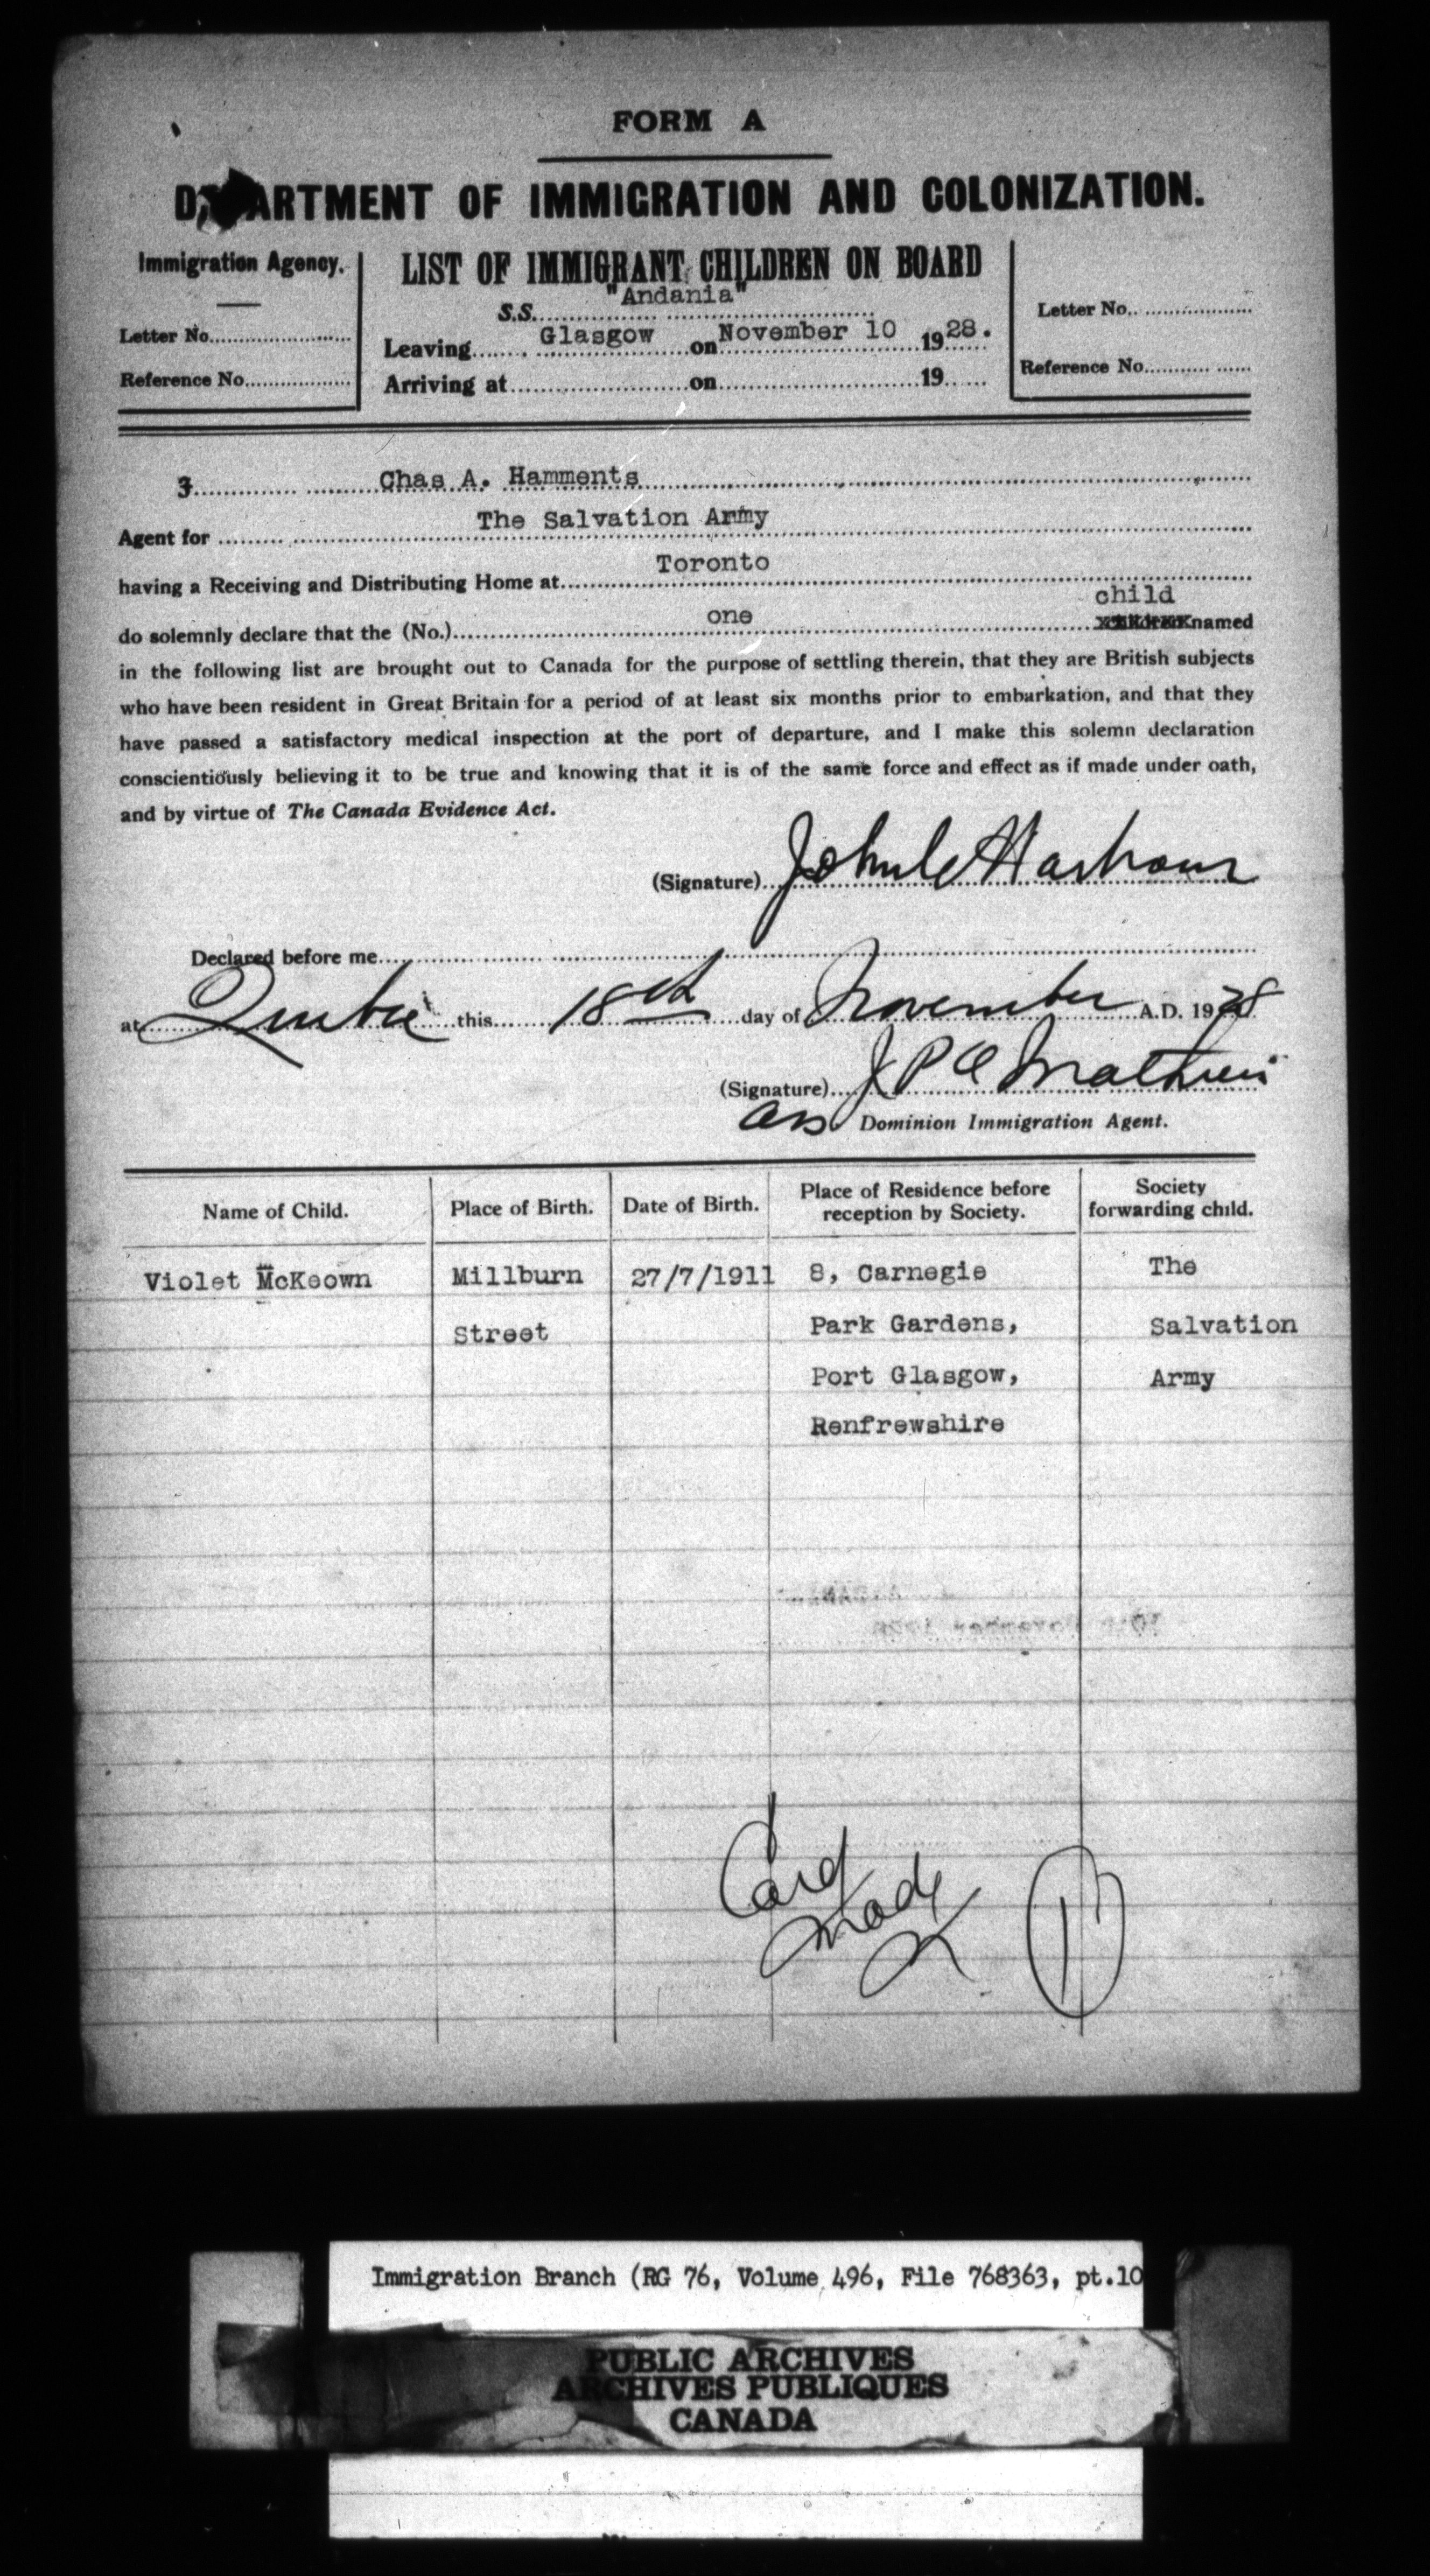 FORM A
DEPARTMENT OF IMMIGRATION AND COLONIZATION.
Immigration Agency.
Letter No.
Reference No.
LIST OF IMMIGRANT CHILDREN ON BOARD
S.S. "Andania"
Leaving Glasgow on November 10 1928.
Arriving at on 19
Letter No.
Reference No.
Chas A. Hamments
Agent for The Salvation Army
having a Receiving and Distributing Home at Toronto
child
do solemnly declare that the (No.) one named
in the following list are brought out to Canada for the purpose of settling therein, that they are British subjects
who have been resident in Great Britain for a period of at least six months prior to embarkation, and that they
have passed a satisfactory medical inspection at the port of departure, and I make this solemn declaration
conscientiously believing it to be true and knowing that it is of the same force and effect as if made under oath,
and by virtue of The Canada Evidence Act.
(Signature)
Declared before me
at Quebec this 18th day of November A.D. 1928
(Signature) J P C Mathieu
Ass Dominion Immigration Agent.
Name of Child. Place of Birth. Date of Birth. Place of Residence before reception by Society. Society forwarding child.
Violet McKeown Millburn 27/7/1911 8, Carnegie The
Street Park Gardens, Salvation
Port Glasgow, Army
Renfrewshire
Card
Made
Immigration Branch (RG 76, Volume 496, File 768363, pt.10
PUBLIC ARCHIVES
ARCHIVES PUBLIQUES
CANADA